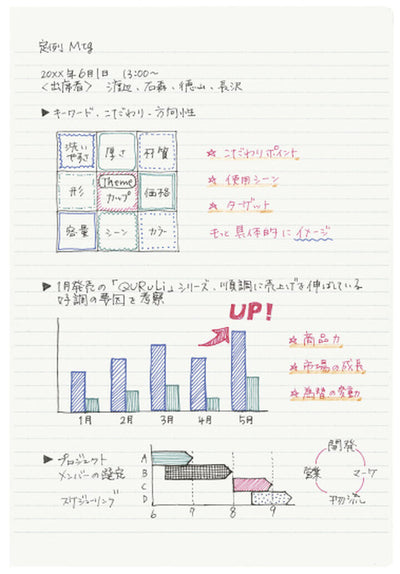 定例 Mtg
20XX年6月1日 13:00〜
〈出席者〉 渡辺、石森、徳山、長沢
▶ キーワード、こだわり、方向性
洗いやすさ 厚さ 材質
形 Theme カップ 価格
容量 シーン カラー
☆ こだわりポイント
☆ 使用シーン
☆ ターゲット
もっと具体的にイメージ
▶ 1月発売の「QURuLi」シリーズ、順調に売上げを伸ばしている
好調の要因を考察
UP!
1月 2月 3月 4月 5月
☆ 商品力
☆ 市場の成長
☆ 為替の変動
▶ プロジェクト
メンバーの選定
スケジューリング
A
B
C
D
6 7 8 9
開発
営業 マーケ
物流